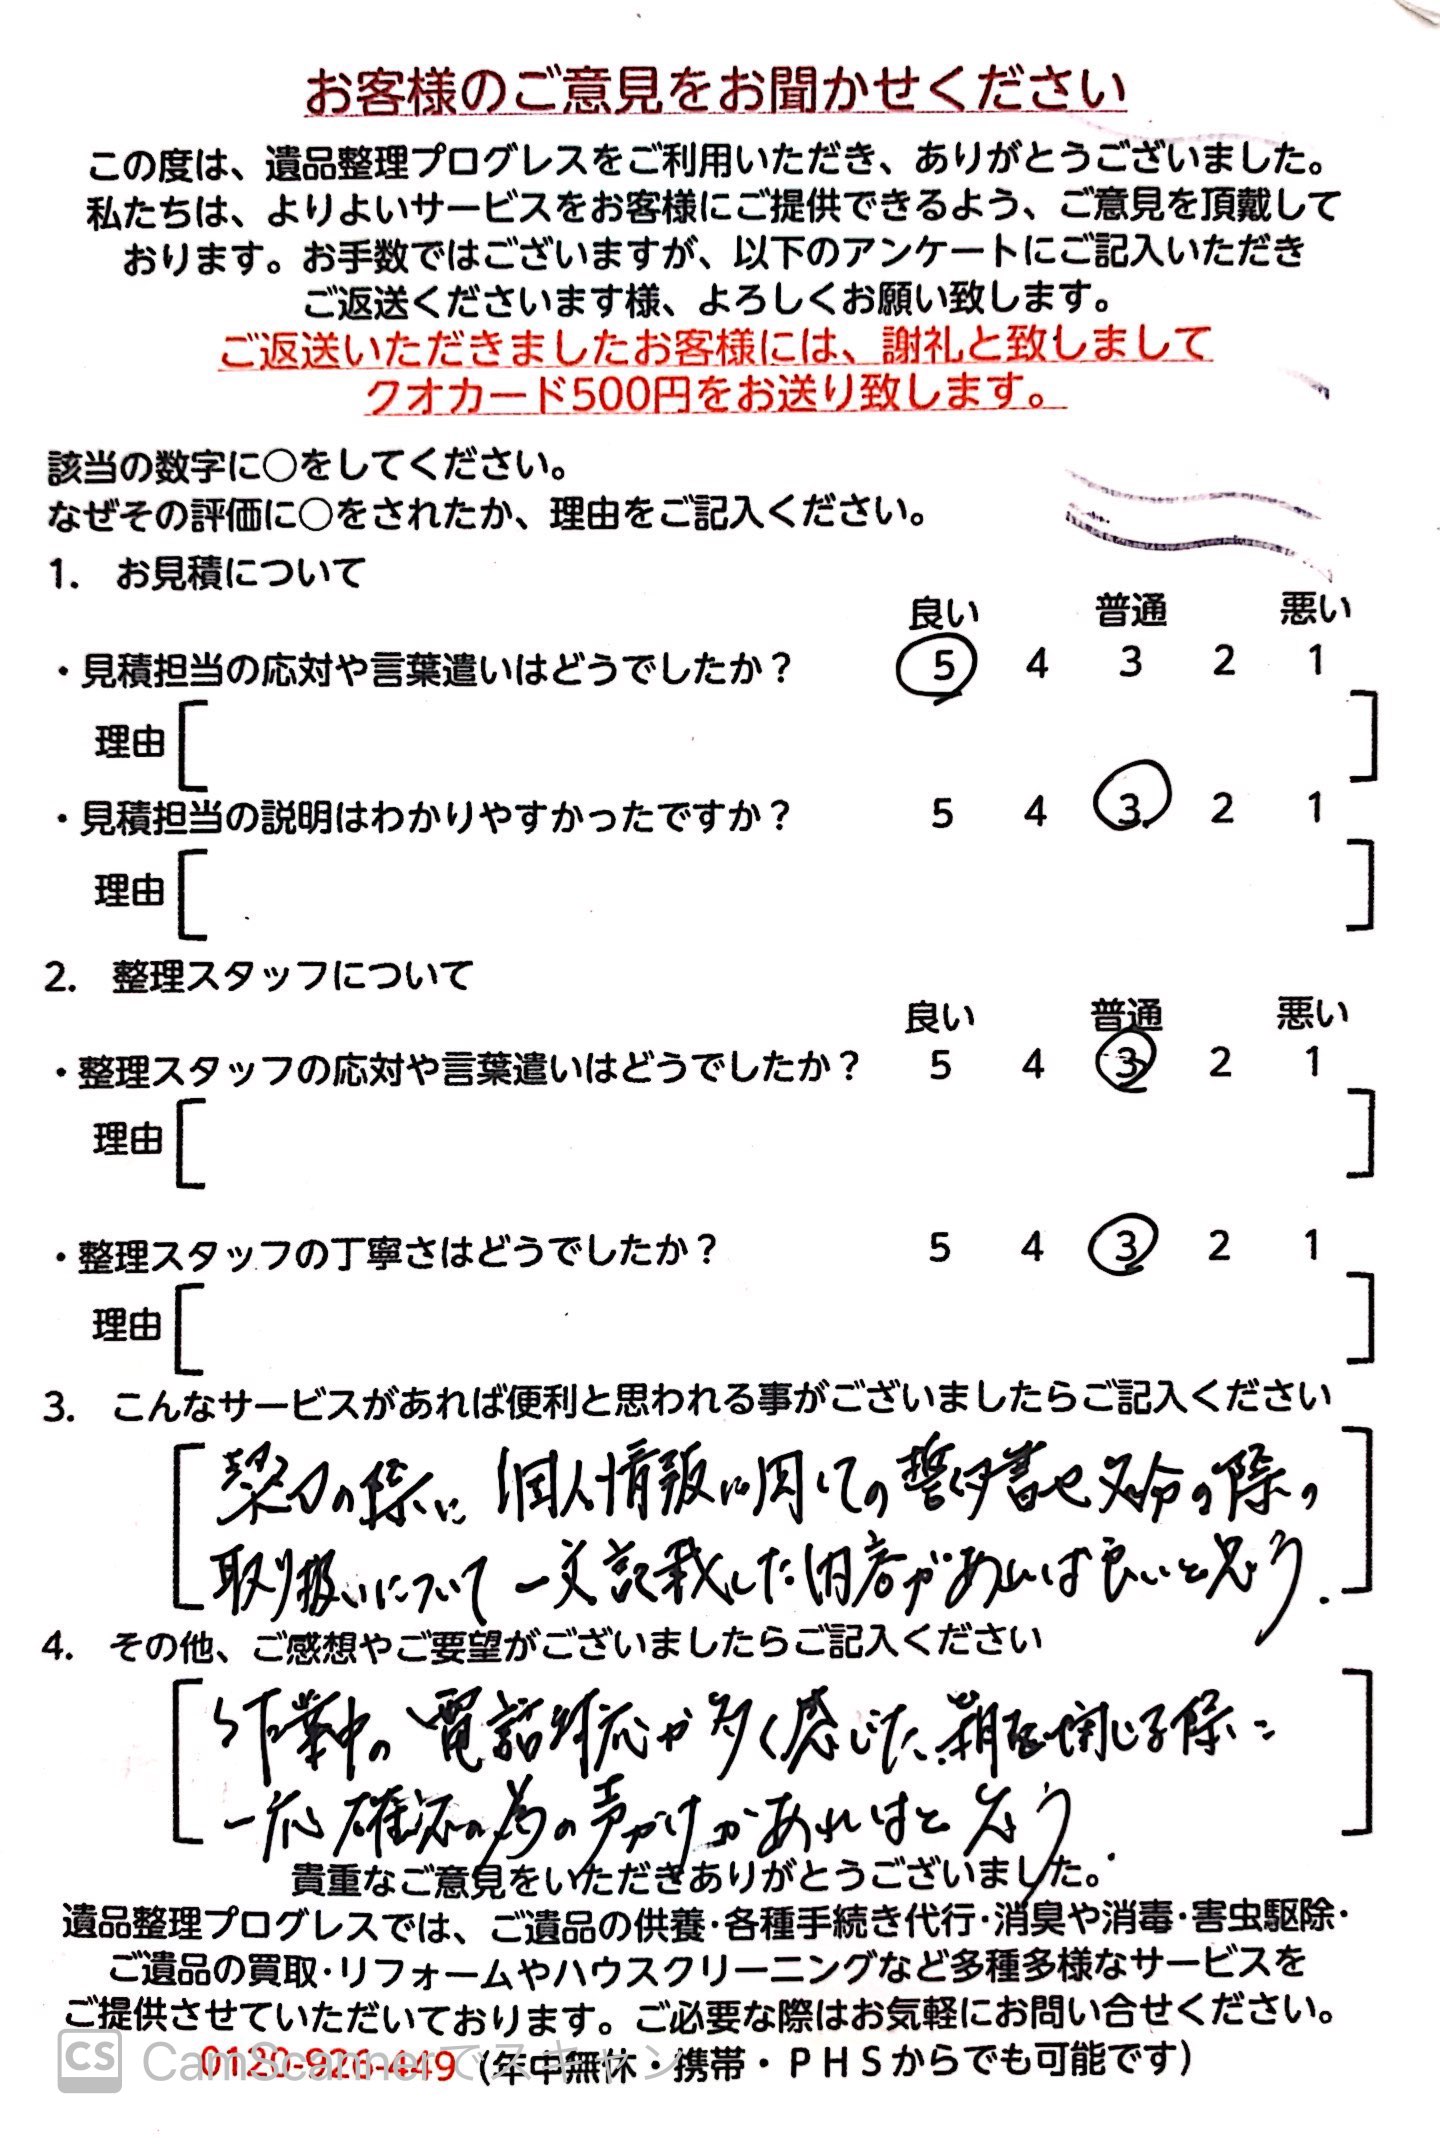 お客様のご意見をお聞かせください
この度は、遺品整理プログレスをご利用いただき、ありがとうございました。
私たちは、よりよいサービスをお客様にご提供できるよう、ご意見を頂戴して
おります。お手数ではございますが、以下のアンケートにご記入いただき
ご返送くださいます様、よろしくお願い致します。
ご返送いただきましたお客様には、謝礼と致しまして
クオカード500円をお送り致します。
該当の数字に○をしてください。
なぜその評価に○をされたか、理由をご記入ください。
1. お見積について
良い 普通 悪い
・見積担当の応対や言葉遣いはどうでしたか？ 5 4 3 2 1
理由
・見積担当の説明はわかりやすかったですか？ 5 4 3 2 1
理由
2. 整理スタッフについて
良い 普通 悪い
・整理スタッフの応対や言葉遣いはどうでしたか？ 5 4 3 2 1
理由
・整理スタッフの丁寧さはどうでしたか？ 5 4 3 2 1
理由
3. こんなサービスがあれば便利と思われる事がございましたらご記入ください
契約の際に 個人情報に関しての 誓約書や の際の
取り扱いについて 一文記載した内容があれば良いと思う.
4. その他、ご感想やご要望がございましたらご記入ください
作業中の 電話対応が多く感じた. 閉じる際に
一応 確認の為の声かけがあればと思う.
貴重なご意見をいただきありがとうございました。
遺品整理プログレスでは、ご遺品の供養・各種手続き代行・消臭や消毒・害虫駆除・
ご遺品の買取・リフォームやハウスクリーニングなど多種多様なサービスを
ご提供させていただいております。ご必要な際はお気軽にお問い合せください。
(年中無休・携帯・ＰＨＳからでも可能です)
CS CamScannerでスキャン